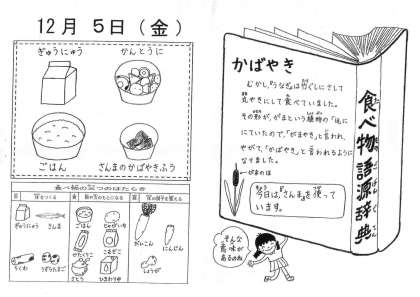 12月 5日(金)
ぎゅうにゅう
かんとうに
ごはん
さんまのかばやきふう
食べ物の三つのはたらき
体をつくる
熱や力のもとになる
体の調子を整える
ぎゅうにゅう
さんま
ちくわ
うずらたまご
ごはん
じゃがいも
かたくりこ
こむぎこ
さとう
ひまわりゆ
だいこん
にんじん
しょうが
食べ物語源辞典
かばやき
むかし、「うなぎ」は竹ぐしにさして
丸やきにして食べていました。
その形が、がまという植物の「ほ」に
にていたので、「がまやき」と言われ、
やがて、「かばやき」と言われるように
なりました。
がまのほ
今日は、「さんま」を使って
います。
そんな
意味が
あるのね